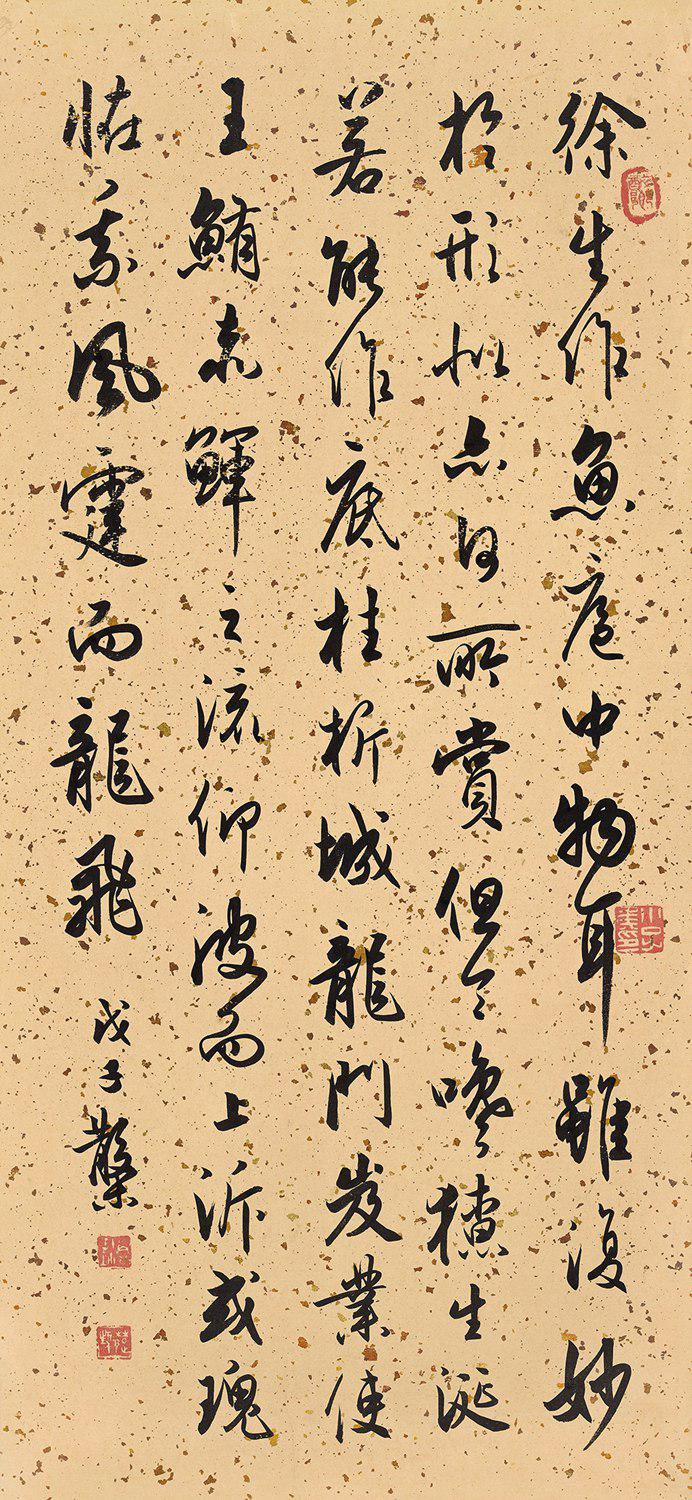 徐生作魚庖中物耳雖復妙
於形似亦何所賞但令嚵獠生涎
若能作底柱析城龍門岌業使
王鮪赤鱓之流仰波而上泝或瑰
怪乘風霆而龍飛
戊子